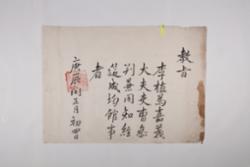 教旨
李植爲嘉義
大夫吏曹參
判兼同知經
筵成均館事
者
庚辰閏正月初四日